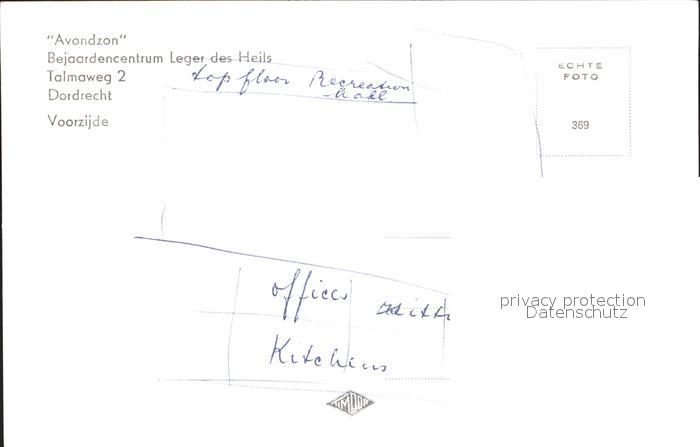 "Avondzon"
Bejaardencentrum Leger des Heils
Talmaweg 2
Dordrecht
Voorzijde
top floor Recreation
- hall
ECHTE
FOTO
369
offices
Kitchens
privacy protection
Datenschutz